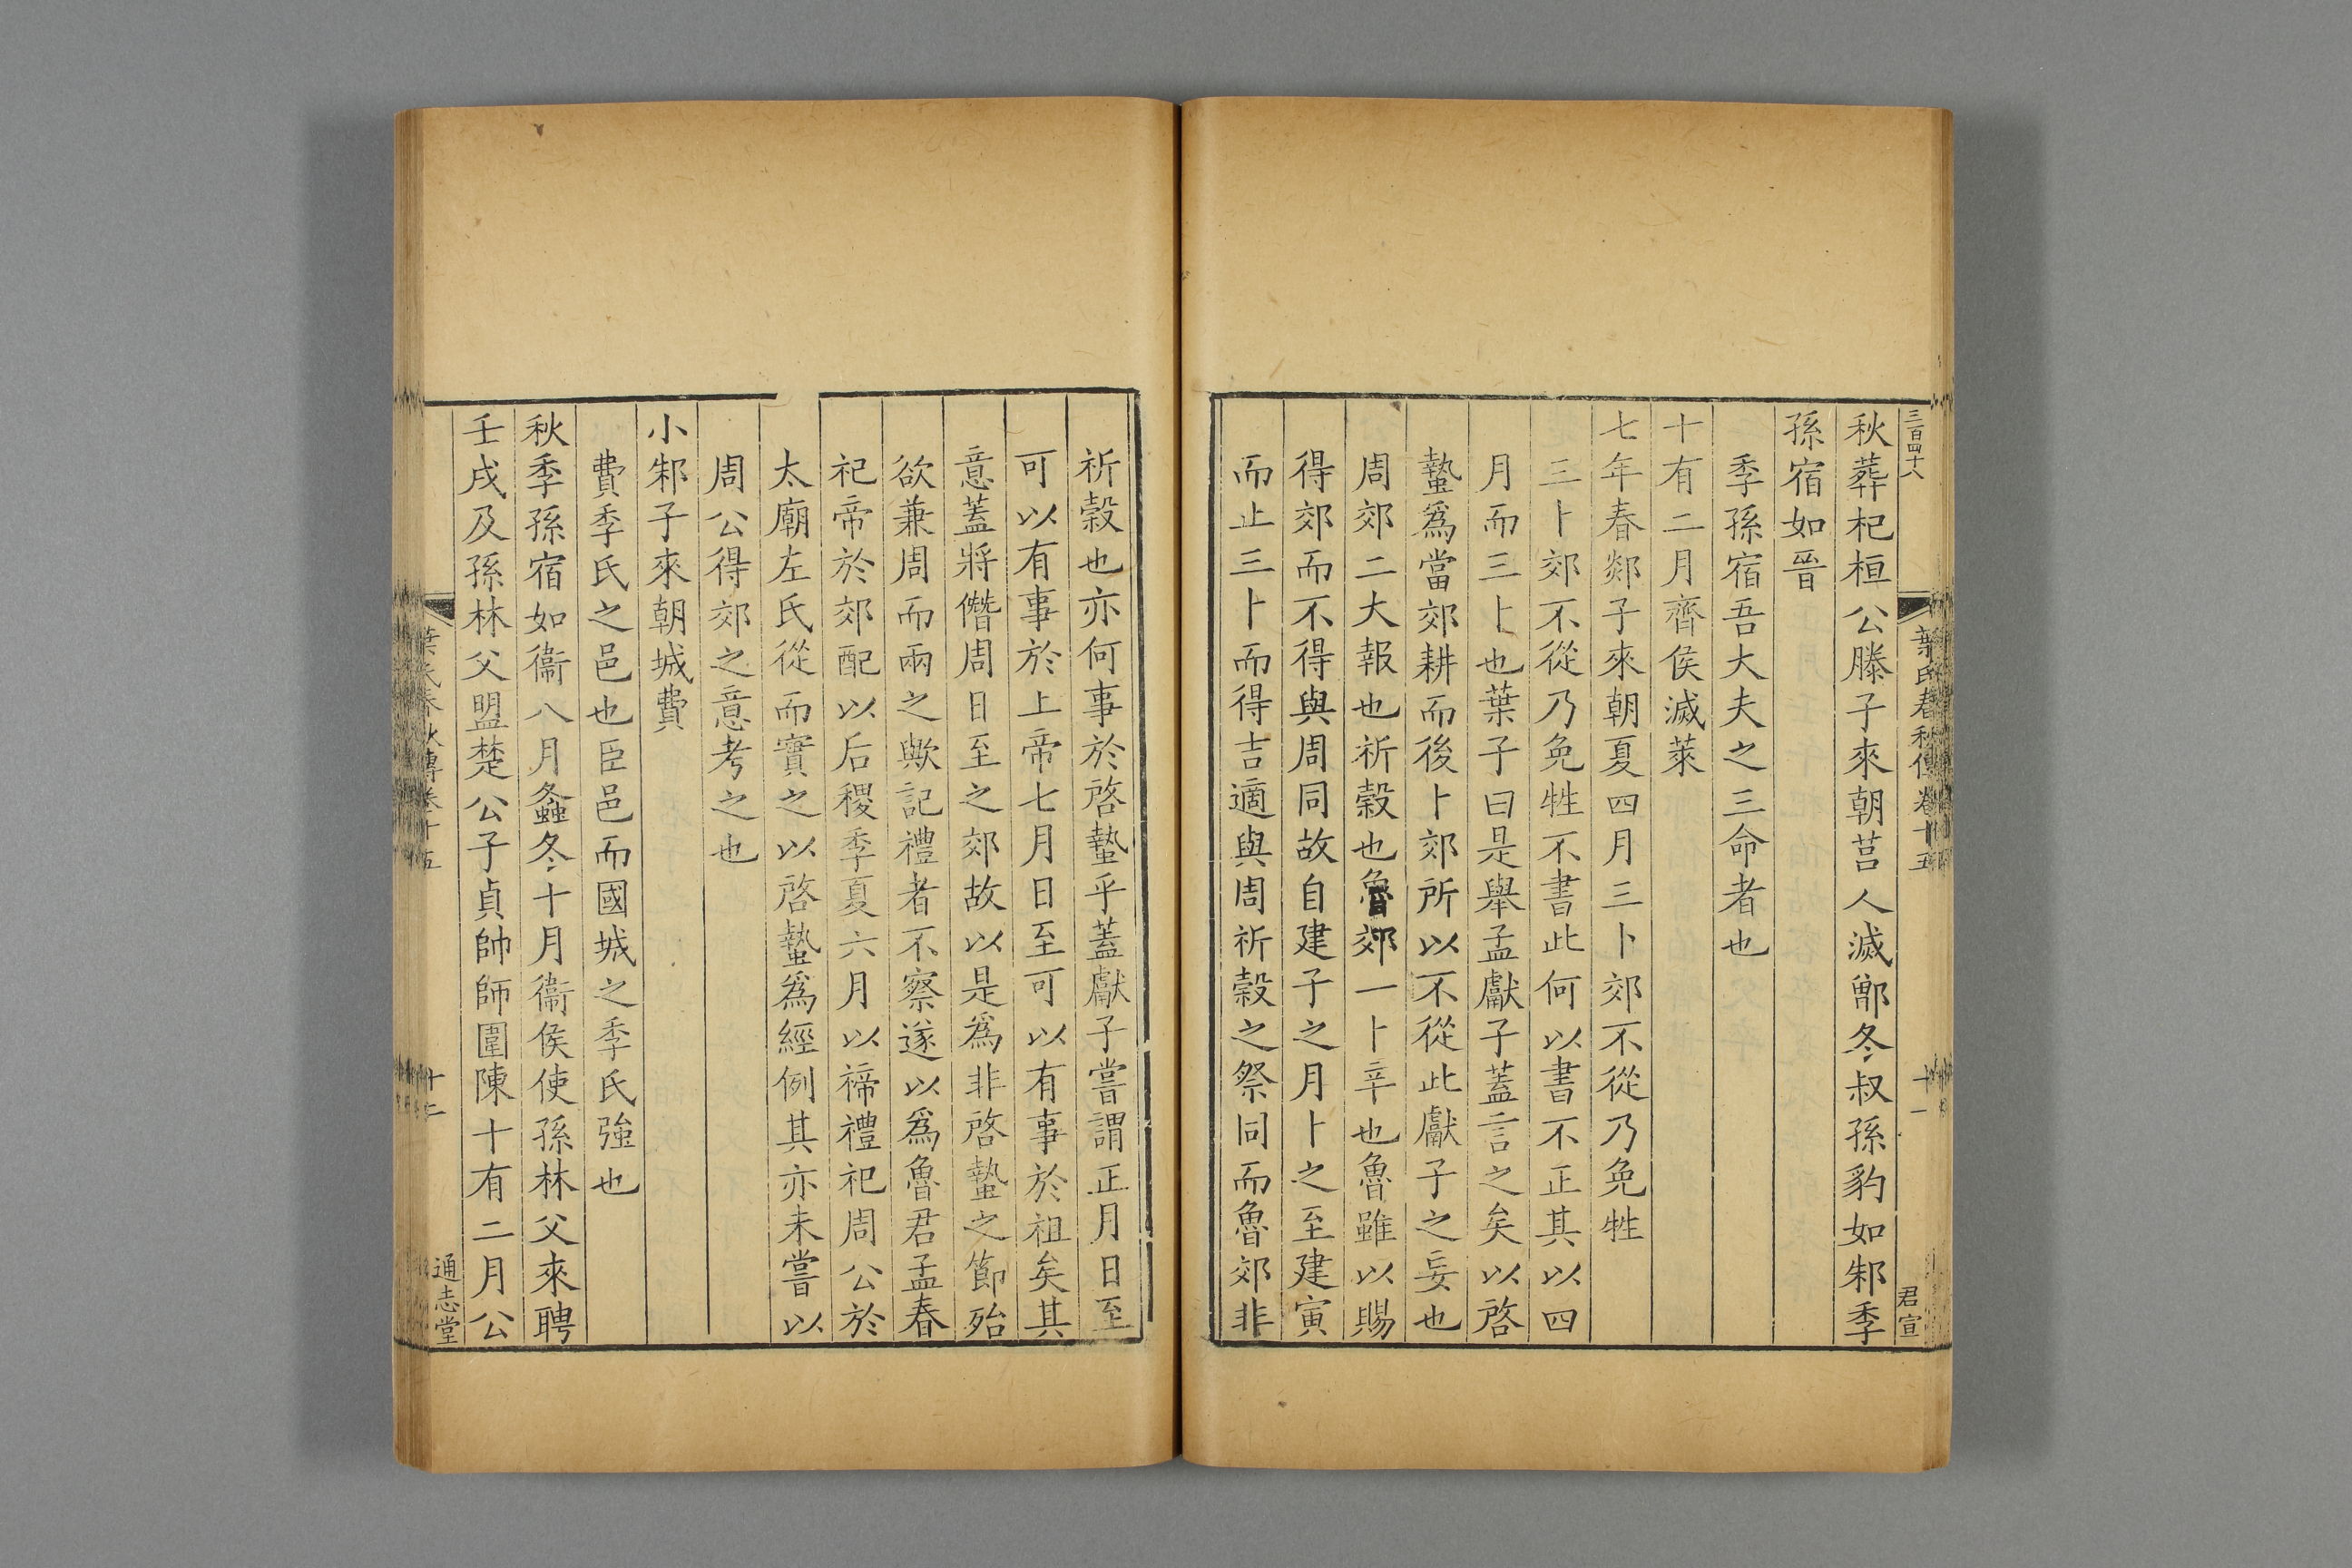 三百四十八
葉氏春秋傳卷十五
十一
君宣
秋葬杞桓公滕子來朝莒人滅鄫冬叔孫豹如邾季
孫宿如晉
季孫宿吾大夫之三命者也
十有二月齊侯滅萊
七年春郯子來朝夏四月三卜郊不從乃免牲
三卜郊不從乃免牲不書此何以書不正其以四
月而三卜也葉子曰是舉孟獻子蓋言之矣以啓
蟄爲當郊耕而後卜郊所以不從此獻子之妄也
周郊二大報也祈榖也魯郊一卜辛也魯雖以賜
得郊而不得與周同故自建子之月卜之至建寅
而止三卜而得吉適與周祈榖之祭同而魯郊非
祈榖也亦何事於啓蟄乎蓋獻子嘗謂正月日至
可以有事於上帝七月日至可以有事於祖矣其
意蓋將僭周日至之郊故以是爲非啓蟄之節殆
欲兼周而兩之歟記禮者不察遂以爲魯君孟春
祀帝於郊配以后稷季夏六月以禘禮祀周公於
太廟左氏從而實之以啓蟄爲經例其亦未嘗以
周公得郊之意考之也
小邾子來朝城費
費季氏之邑也臣邑而國城之季氏強也
秋季孫宿如衞八月螽冬十月衞侯使孫林父來聘
壬戌及孫林父盟楚公子貞帥師圍陳十有二月公
葉氏春秋傳卷十五
十二
通志堂